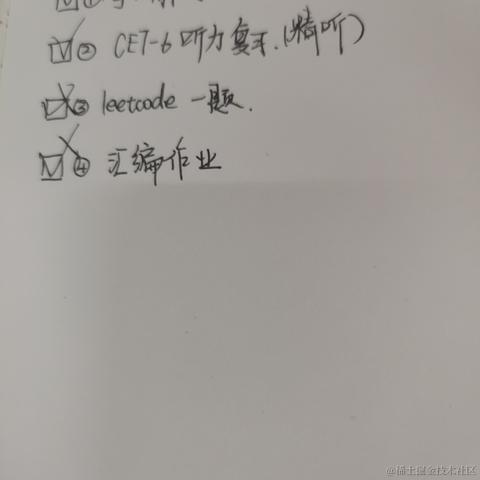 ②CET-6听力复习.(精听)
③leetcode 一题.
④汇编作业
@稀土掘金技术社区